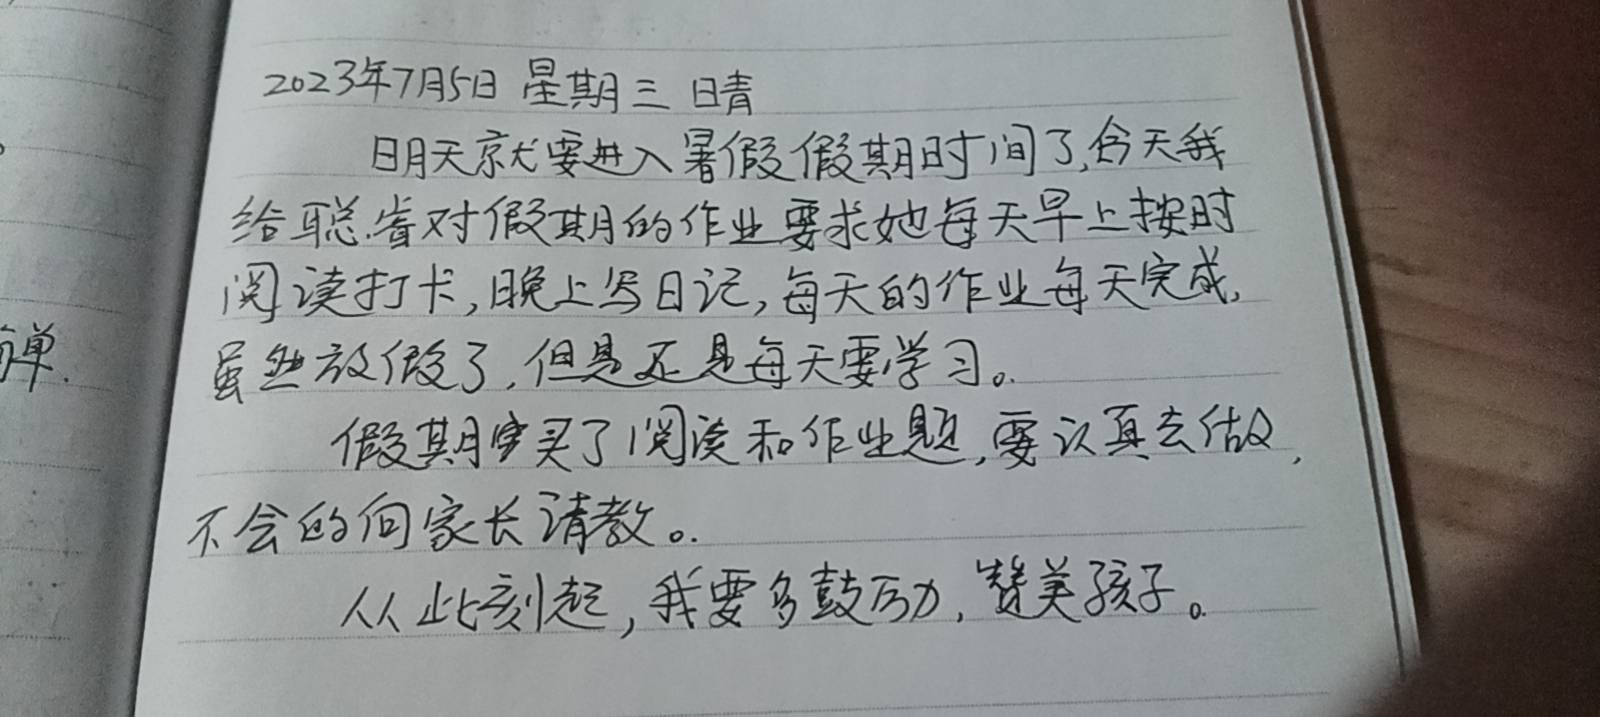 2023年7月5日 星期三 晴
明天就要进入暑假假期时间了,今天我
给聪睿对假期的作业要求她每天早上按时
阅读打卡,晚上写日记,每天的作业每天完成,
虽然放假了,但是还是每天要学习。
假期买了阅读和作业题,要认真去做,
不会的向家长请教。
从此刻起,我要多鼓励,赞美孩子。
单.